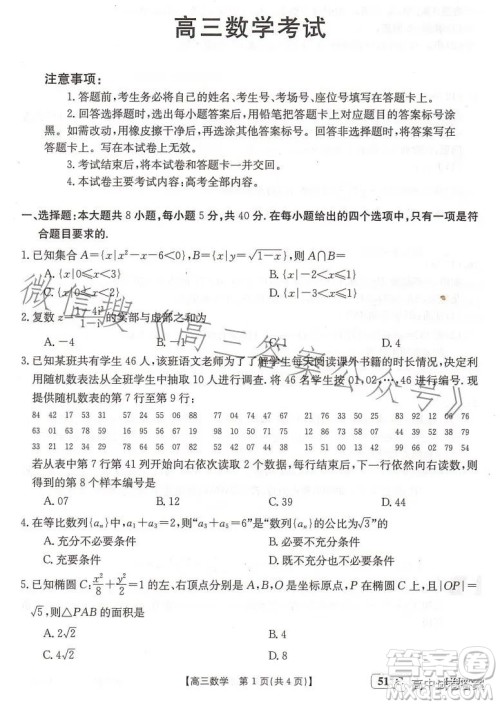 高三数学考试
注意事项:
1.答题前,考生务必将自己的姓名、考生号、考场号、座位号填写在答题卡上。
2.回答选择题时,选出每小题答案后,用铅笔把答题卡上对应题目的答案标号涂
黑。如需改动,用橡皮擦干净后,再选涂其他答案标号。回答非选择题时,将答案写在
答题卡上。写在本试卷上无效。
3.考试结束后,将本试卷和答题卡一并交回。
4.本试卷主要考试内容:高考全部内容。
一、选择题:本大题共8小题,每小题5分,共40分.在每小题给出的四个选项中,只有一项符
合题目要求的.
1.已知集合A={x|x²-x-6<0},B={x|y=√(1-x)},则A∩B=
A.{x|0≤x<3} B.{x|-2<x≤1}
C.{x|0≤x≤2} D.{x|-3<x≤1}
2.复数 的实部与虚部之和为
A.-4
3.已知某班共有学生46人,该班语文老师为了了解学生每天阅读课外书籍的时长情况,决定利
用随机数表法从全班学生中抽取10人进行调查.将46名学生按01,02,…,46进行编号.现
提供随机数表的第7行至第9行:
84 42 17 53 31 57 24 55 06 88 77 04 74 47 67 21 76 33 50 25 83 92 12 06 76
63 01 63 78 59 16 95 55 67 19 98 10 50 71 75 12 86 73 58 07 44 39 52 38 79
33 21 12 34 29 78 64 56 07 82 52 42 07 44 38 15 51 00 13 42 99 66 02 79 54
若从表中第7行第41列开始向右依次读取2个数据,每行结束后,下一行依然向右读数,则
得到的第8个样本编号是
A.07 B.12 C.39 D.44
4.在等比数列{aₙ}中,a₁+a₃=2,则“ =6”是“数列{aₙ}的公比为√3”的
A.必要不充分条件 B.充分不必要条件
C.充要条件 D.既不充分也不必要条件
5.已知椭圆C:x²/8+y²/2=1的左、右顶点分别是A,B(O为坐标原点,P是椭圆C上的一点,且|OP|=
√5,则△PAB的面积是
A.2√2 B.4
C.4√2 D.8
【高三数学 第1页(共4页)】
微信搜《高三答案公众号》
高中试卷答案